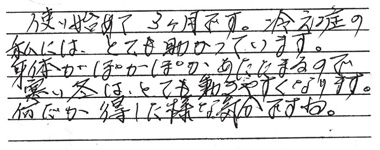 使い始めて3ヶ月です。冷え症の
私には、とても助かっています。
身体がぽかぽかあたたまるので
寒い冬は、とても動きやすくなります。
何だか得した様な気分ですね。